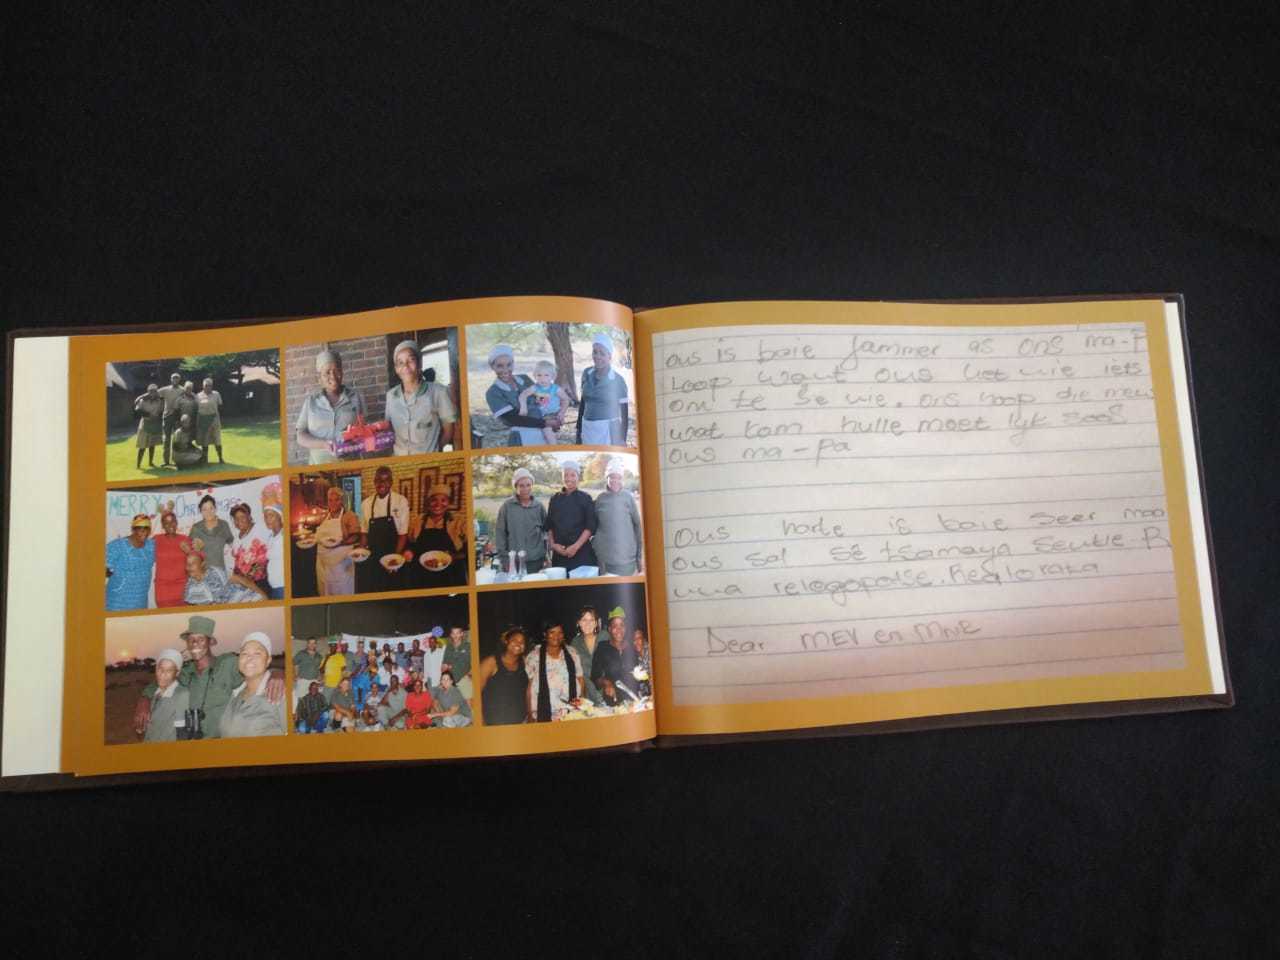 MERRY Christmas
ons is baie jammer as ons ma-P
Loop want ons het nie iets
om te se nie. ons hoop die mens
wat kom hulle moet lyk soos
ons ma-pa
Ons harte is baie seer maa
ons sal sê tsamaya sentle-R
relogopotse. Realorata
Dear MEV en MNE